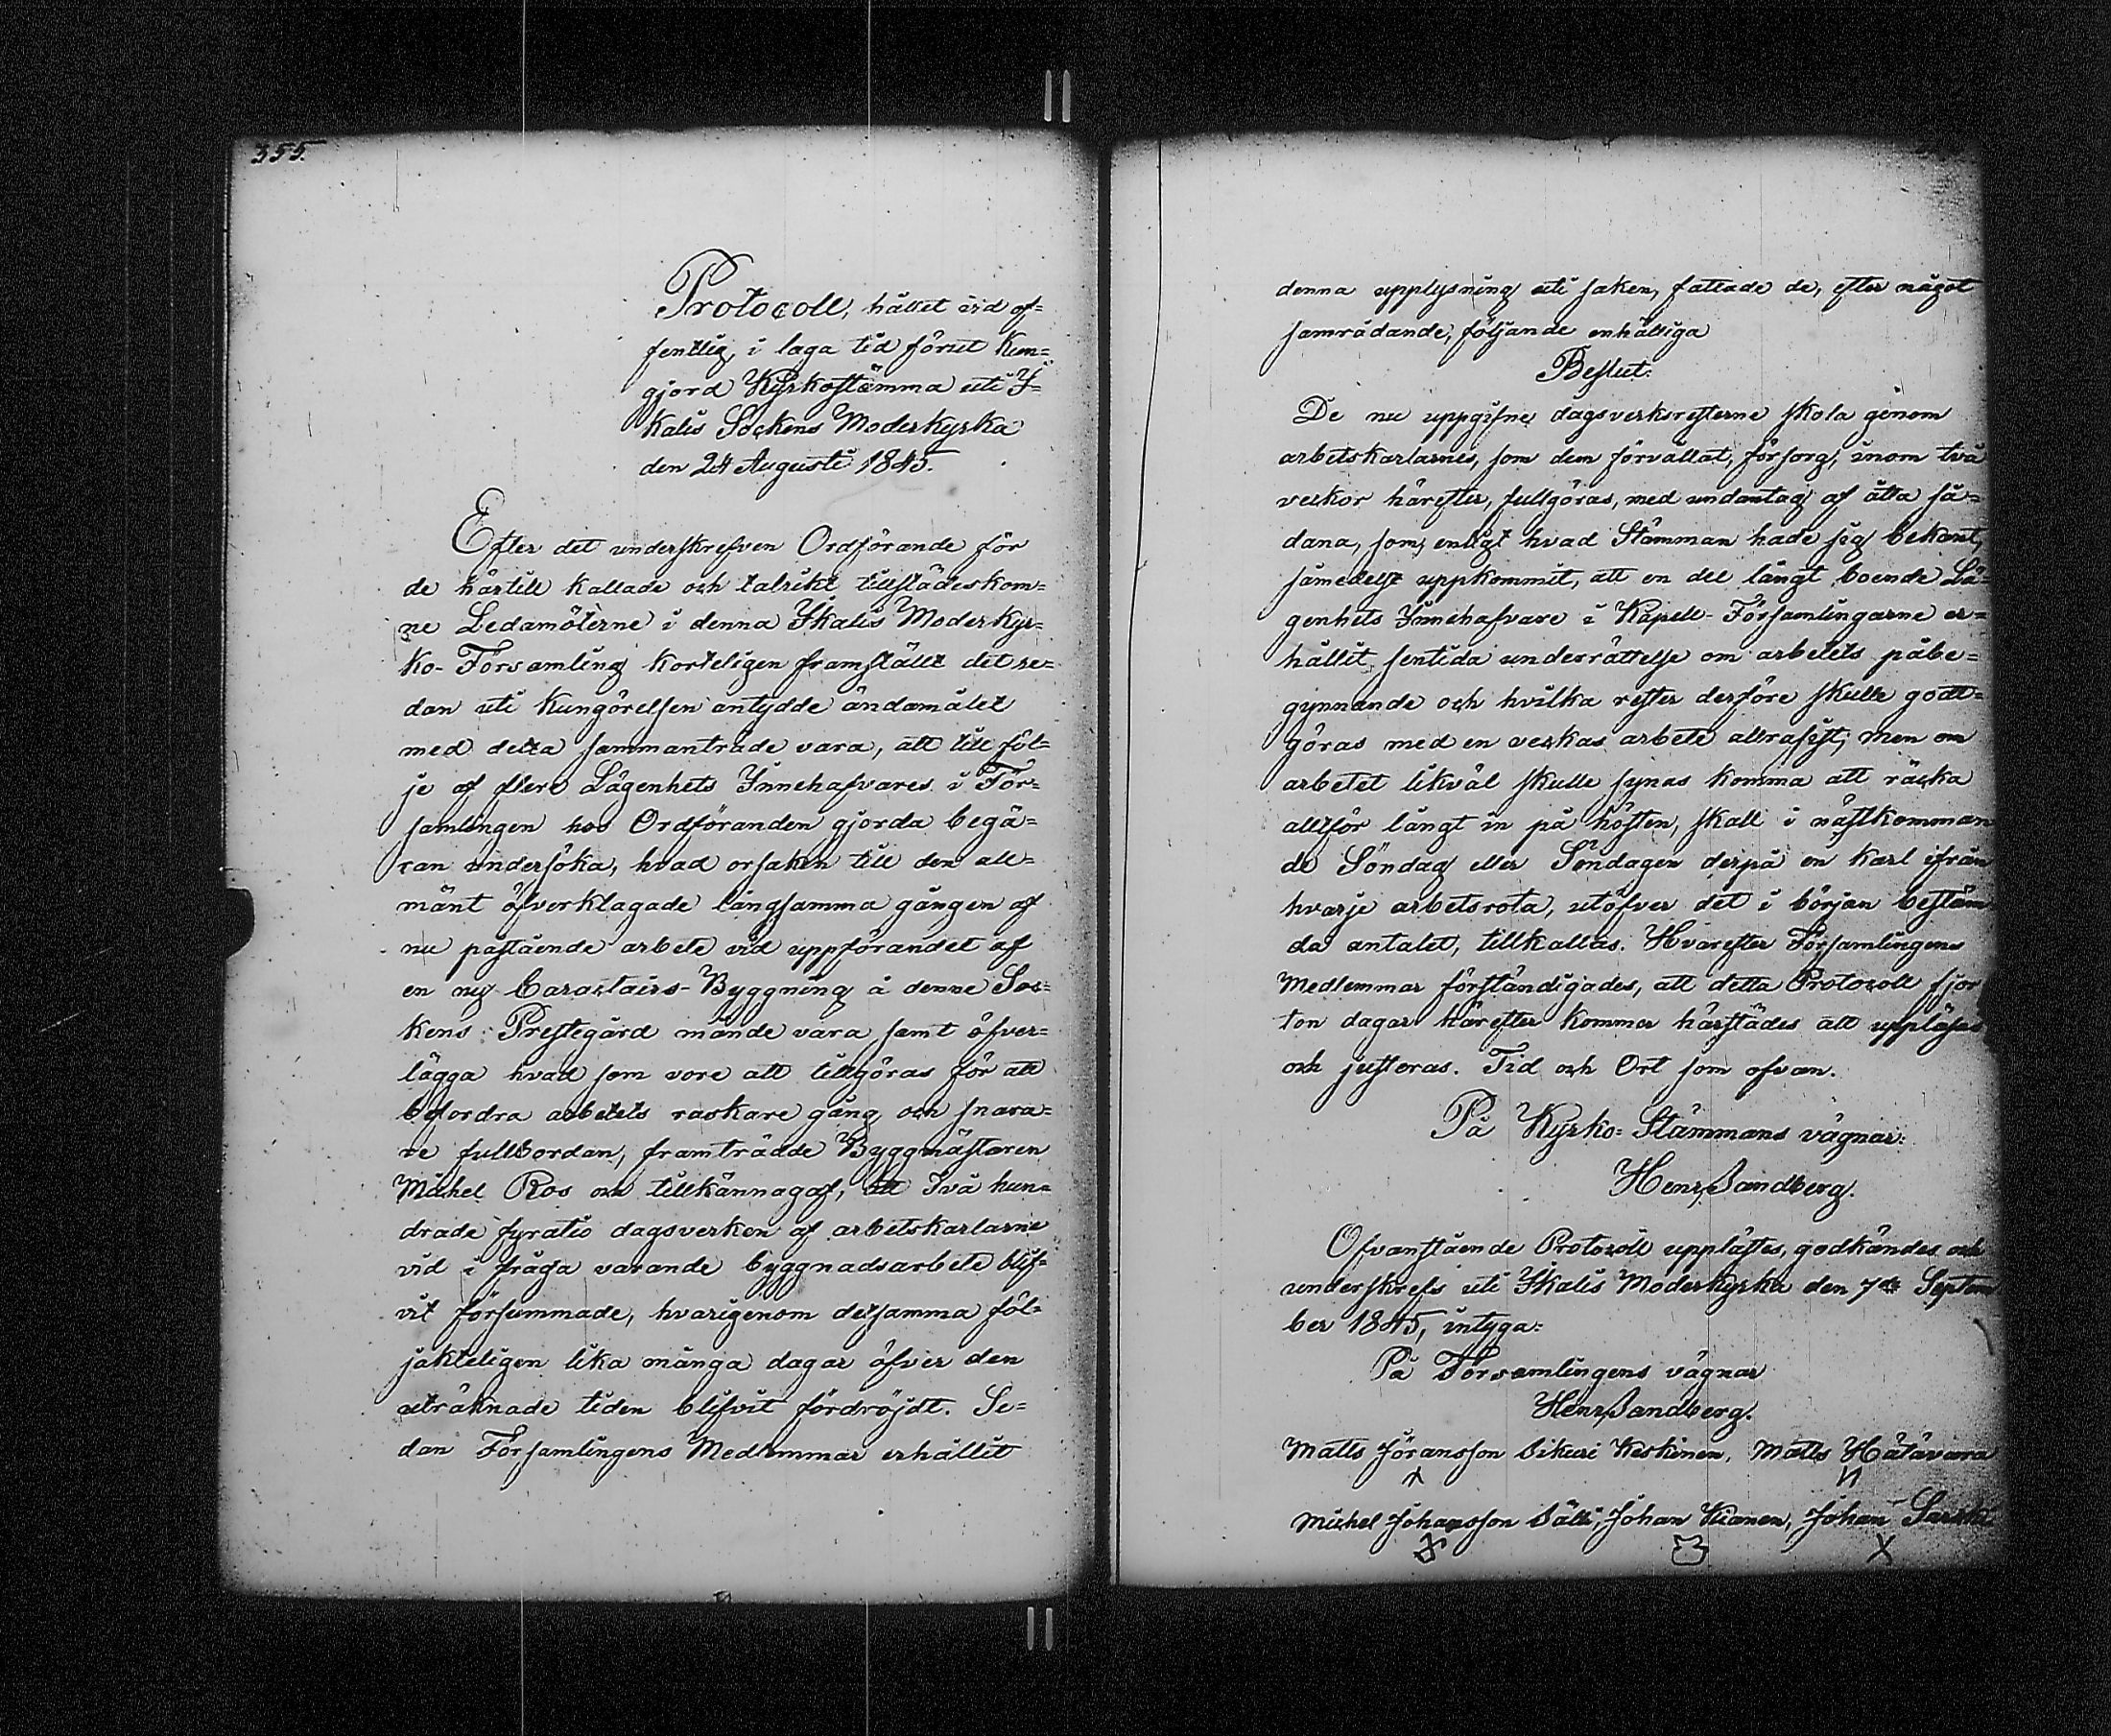 355.
Protocoll, hållet vid of=
fentlig, i laga tid förut kun=
gjord Kyrkostämma uti I=
kalis Sockens Moderkyrka
den 24 Augusti 1845.
Efter det underskrefven Ordförande för
de härtill kallade och talrikt tillstädeskom=
ne Ledamöterne i denna Ikalis Moderkyr=
ko-Församling korteligen framställt det re=
dan uti kungörelsen antydde ändamålet
med detta sammanträde vara, att till föl=
je af flere Lägenhets Innehafvares i För=
samlingen hos Ordföranden gjorda begä=
ran undersöka, hvad orsaken till den all=
mänt öfverklagade långsamma gången af
nu påstående arbete vid uppförandet af
en ny Caractairs-Byggning å denne Soc=
kens Prestegård månde vara, samt öfver=
lägga hvad som vore att tillgöras för att
befordra arbetets raskare gång och snara=
re fullbordan, framträdde Byggmästaren
Michel Ros och tillkännagaf, att Två hun=
drade fyratio dagsverken af arbetskarlarne
vid i fråga varande byggnadsarbete blif=
vit försummade, hvarigenom detsamma föl=
jakteligen lika många dagar öfver den
uträknade tiden blifvit fördröjdt. Se=
dan Församlingens Medlemmar erhållit
denna upplysning uti saken, fattade de, efter något
samrådande, följande enhälliga
Beslut:
De nu uppgifne dagsverksresterne skola genom
arbetskarlarnes, som dem förvållat, försorg, inom två
veckor härefter, fullgöras, med undantag af åtta så=
dana, som, enligt hvad Stämman hade sig bekant,
sämedelst uppkommit, att en del långt boende Lä=
genhets Innehafvare i Kapell-Församlingarne er=
hållit sentida underrättelse om arbetets påbe=
gynnande och hvilka rester derföre skulle godt=
göras med en veckas arbete allrasist; men om
arbetet likväl skulle synas komma att räcka
alltför långt in på hösten, skall i nästkomman
de Söndag eller Söndagen derpå en karl ifrån
hvarje arbetsrota, utöfver det i början bestäm
da antalet, tillkallas. Hvarefter Församlingens
Medlemmar förständigades, att detta Protocoll fjor
ton dagar härefter kommer härstädes att uppläsas
och justeras. Tid och Ort som ofvan.
På Kyrko=Stämmans vägnar:
Henr. Sandberg.
Ofvanstående Protocoll upplästes, godkändes och
underskrefs uti Ikalis Moderkyrka den 7de Septem
ber 1845, intyga:
På Församlingens vägnar
Henr. Sandberg.
Matts Jöransson Keskinen, Matts Hätävara
Michel Johansson Johan Kianen, Johan